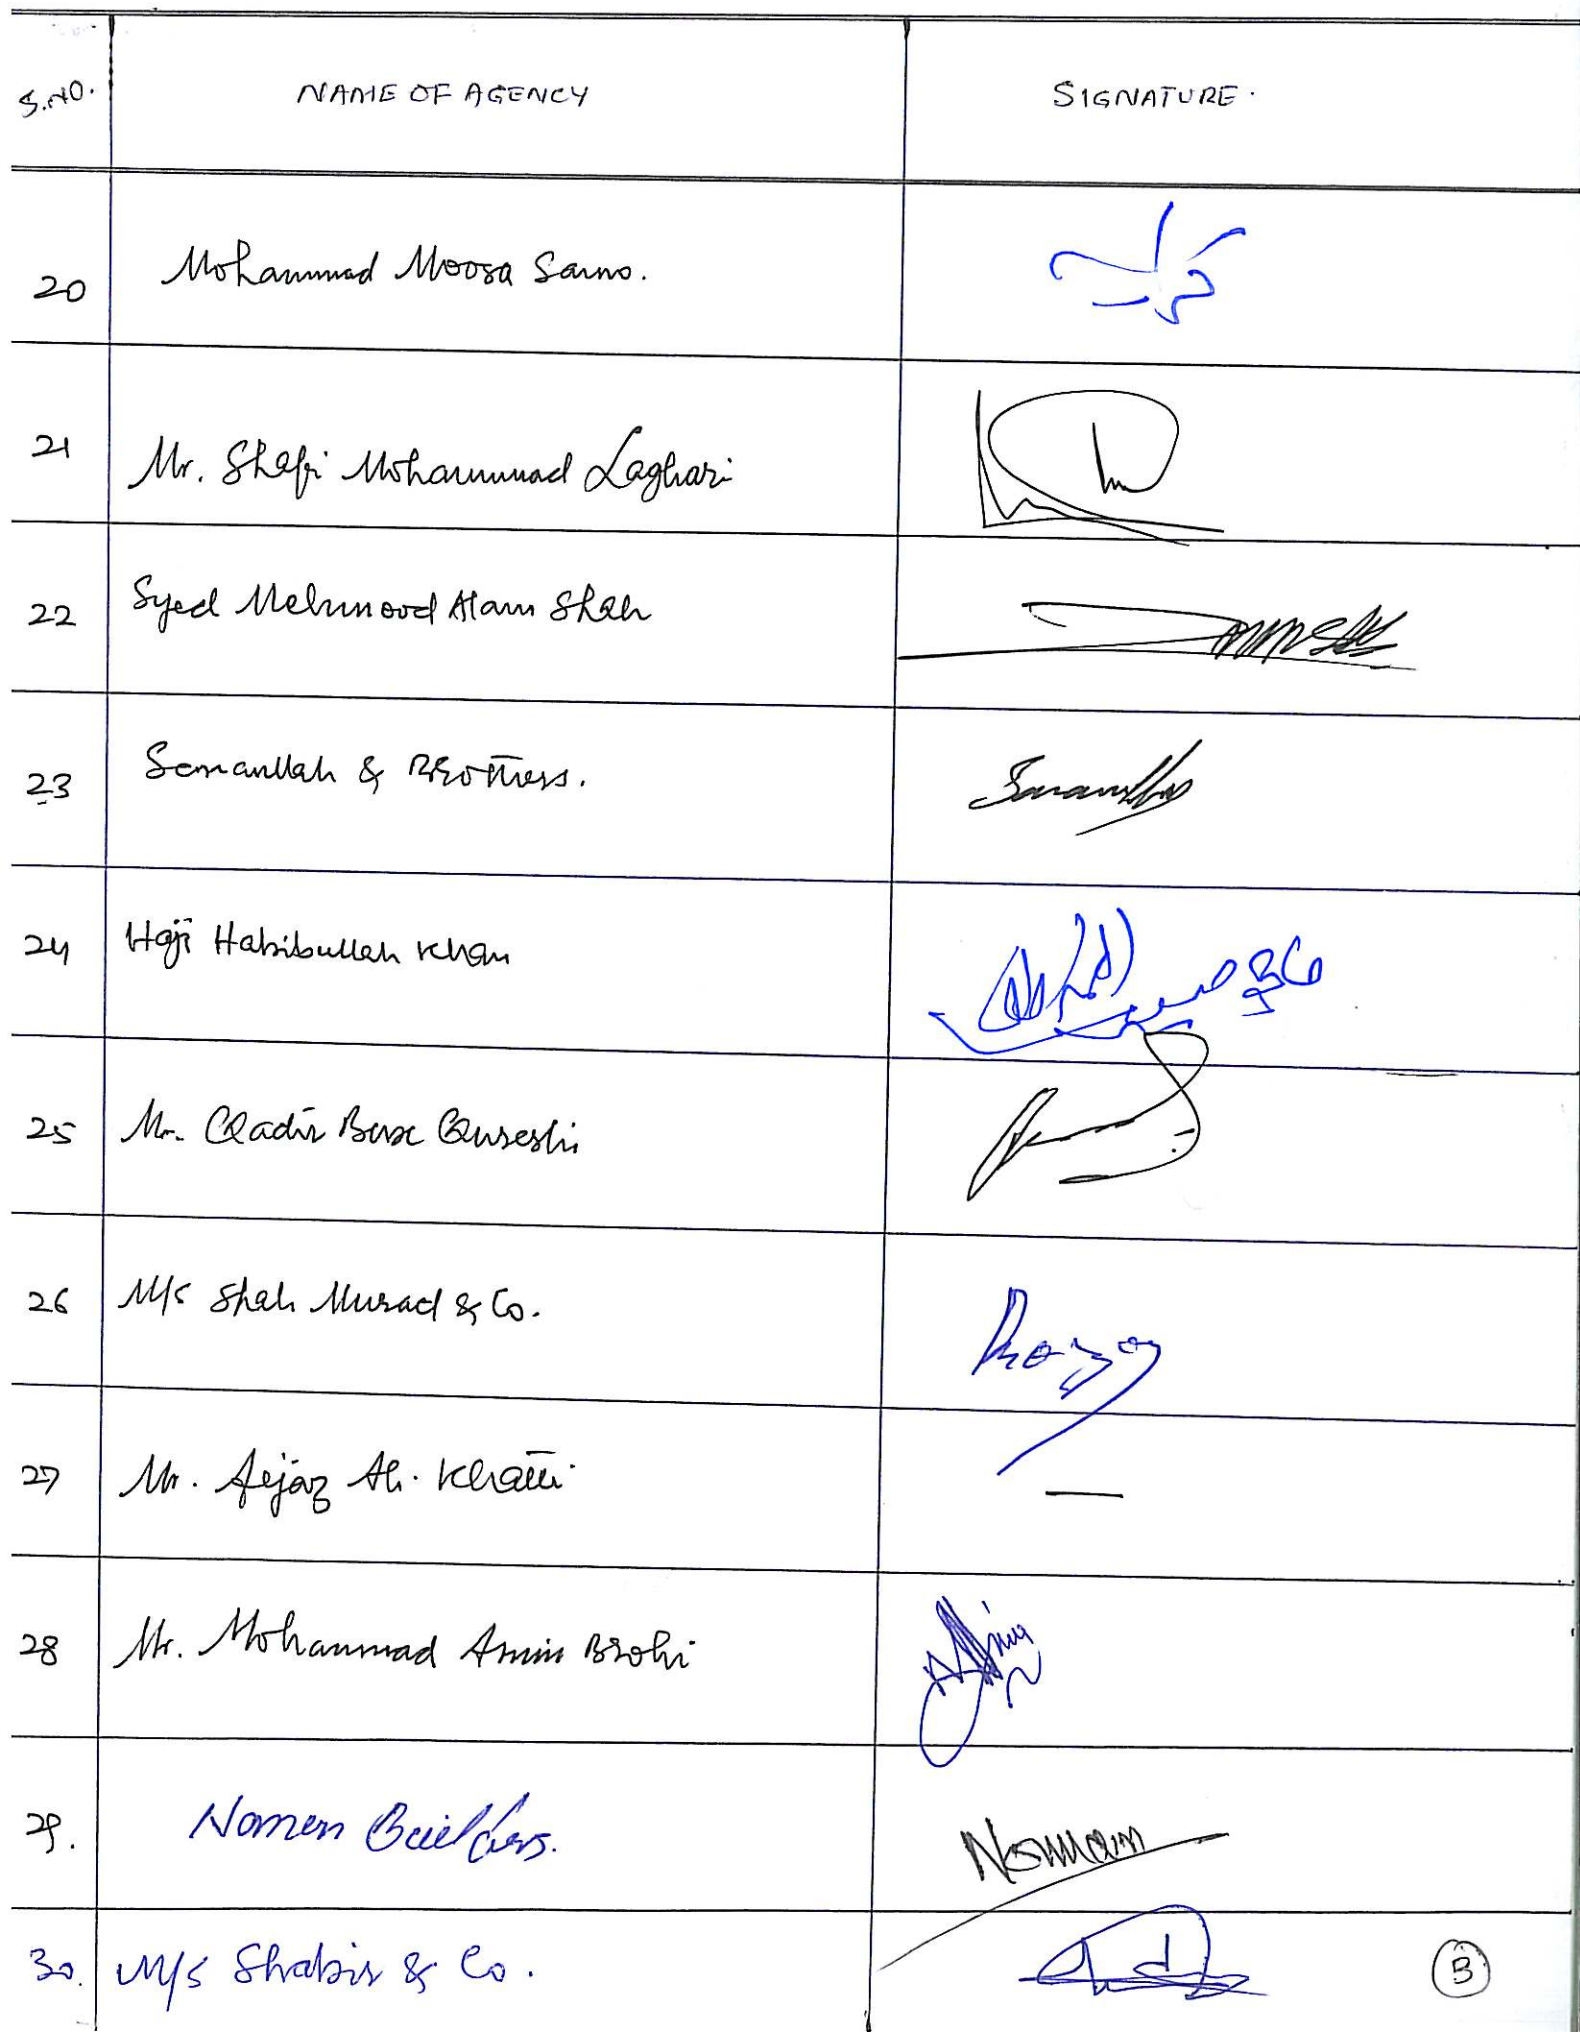 S.NO. NAME OF AGENCY SIGNATURE.
20 Mohammad Moosa Samo.
21 Mr. Shafi Mohammad Laghari
22 Syed Mehmood Alam Shah
23 Samanullah & Brothers.
24 Haji Habibullah Khan
25 Mr. Qadir Bux Qureshi
26 M/s Shah Murad & Co.
27 Mr. Aijaz Ali Khatti —
28 Mr. Mohammad Amin Brohi
29. Noman Builders. Noman
30. M/s Shabir & Co.
3